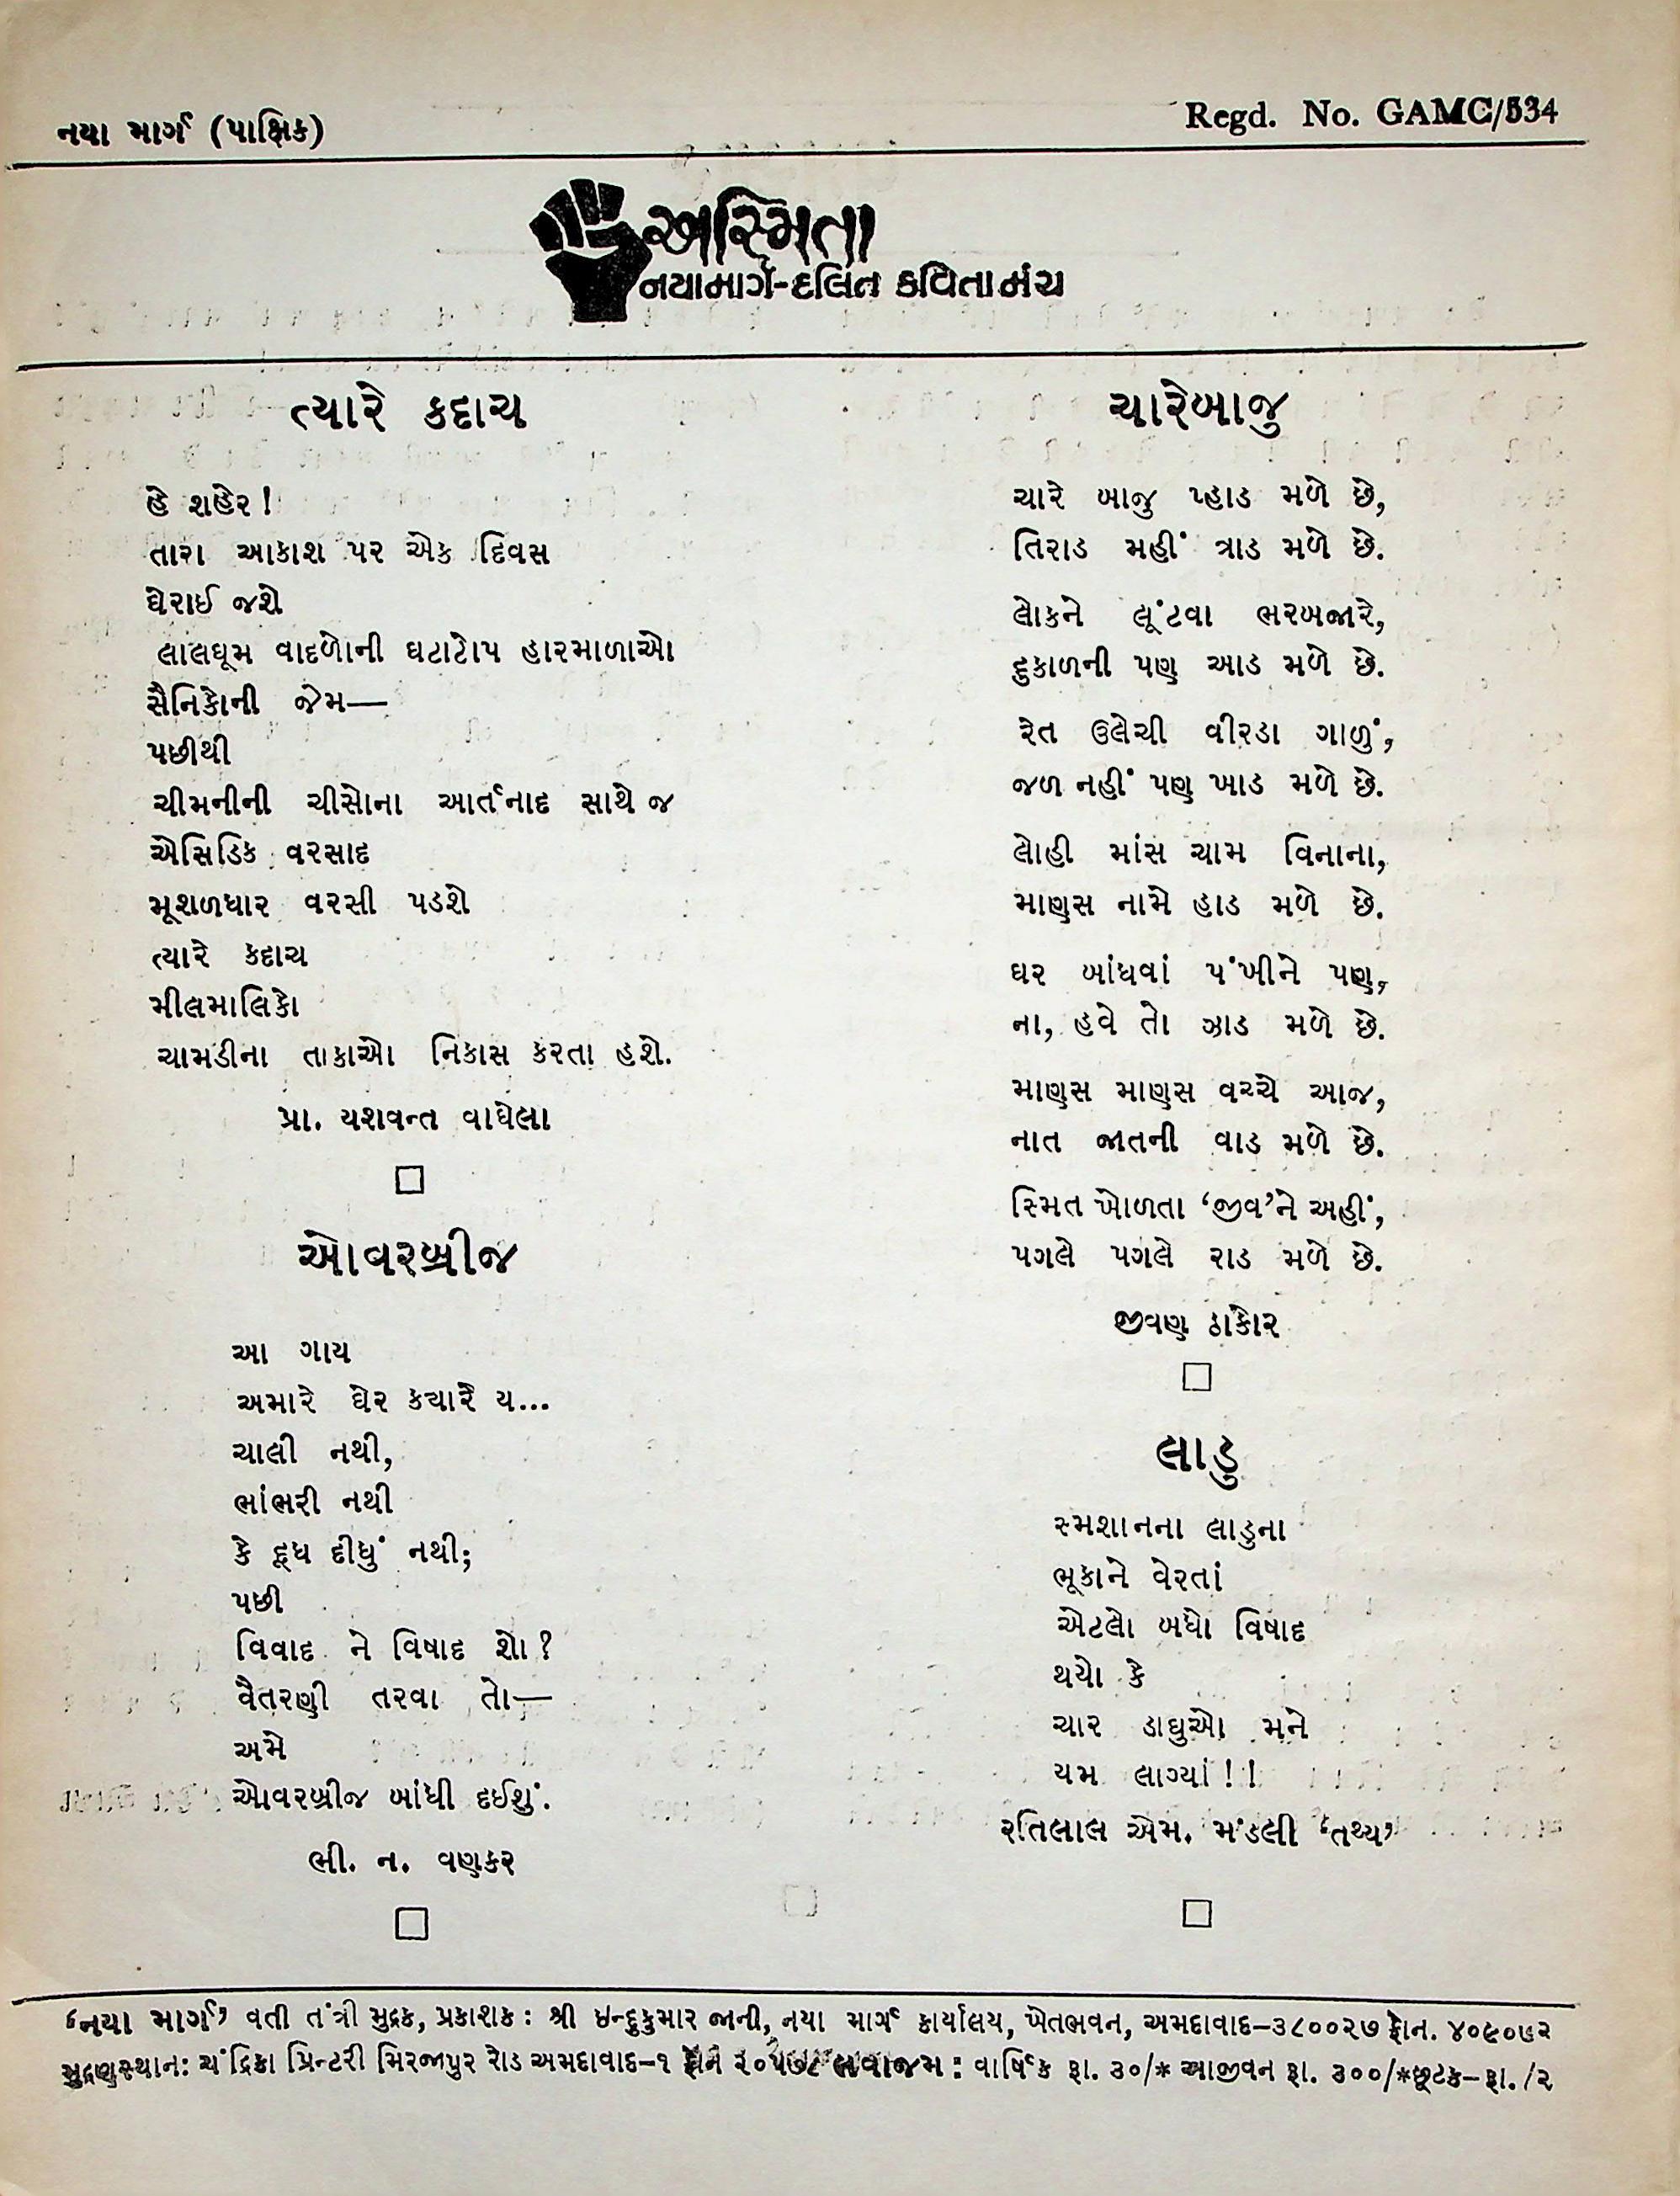 નયા માર્ગ (પાક્ષિક)
Regd. No. GAMC/534
અસ્મિતા
નયામાર્ગ-દલિત કવિતામંચ
ત્યારે કદાચ
હે શહેર !
તારા આકાશ પર એક દિવસ
ઘેરાઈ જશે
લાલઘૂમ વાદળોની ઘટાટોપ હારમાળાઓ
સૈનિકોની જેમ—
પછીથી
ચીમનીની ચીસોના આર્તનાદ સાથે જ
એસિડિક વરસાદ
મૂશળધાર વરસી પડશે
ત્યારે કદાચ
મીલમાલિકો
ચામડીના તાકાઓ નિકાસ કરતા હશે.
પ્રા. યશવન્ત વાઘેલા
ઓવરબ્રીજ
આ ગાય
અમારે ઘેર કયારે ય...
ચાલી નથી,
ભાંભરી નથી
કે દૂધ દીધું નથી;
પછી
વિવાદ ને વિષાદ શો ?
વૈતરણી તરવા તો—
અમે
ઓવરબ્રીજ બાંધી દઈશું.
ભી. ન. વણકર
ચારેબાજુ
ચારે બાજુ પ્હાડ મળે છે,
તિરાડ મહીં ત્રાડ મળે છે.
લોકને લૂંટવા ભરબજારે,
દુકાળની પણ આડ મળે છે.
રેત ઉલેચી વીરડા ગાળું,
જળ નહીં પણ ખાડ મળે છે.
લોહી માંસ ચામ વિનાના,
માણસ નામે હાડ મળે છે.
ઘર બાંધવાં પંખીને પણ,
ના, હવે તો ઝાડ મળે છે.
માણસ માણસ વચ્ચે આજ,
નાત જાતની વાડ મળે છે.
સ્મિત ખોળતા ‘જીવ’ને અહીં,
પગલે પગલે રાડ મળે છે.
જીવણ ઠાકોર
લાડુ
સ્મશાનના લાડુના
ભૂકાને વેરતાં
એટલો બધો વિષાદ
થયો કે
ચાર ડાઘુઓ મને
યમ લાગ્યાં ! !
રતિલાલ એમ. મંડલી ‘તથ્ય’
‘નયા માર્ગ’ વતી તંત્રી મુદ્રક, પ્રકાશક : શ્રી ઇન્દુકુમાર જાની, નયા માર્ગ કાર્યાલય, ખેતભવન, અમદાવાદ–૩૮૦૦૨૭ ફોન. ૪૦૯૦૭૨
મુદ્રણસ્થાન: ચંદ્રિકા પ્રિન્ટરી મિરજાપુર રોડ અમદાવાદ–૧ ફોન લવાજમ : વાર્ષિક રૂા. ૩૦/* આજીવન રૂા. ૩૦૦/*છૂટક– રૂા. /૨